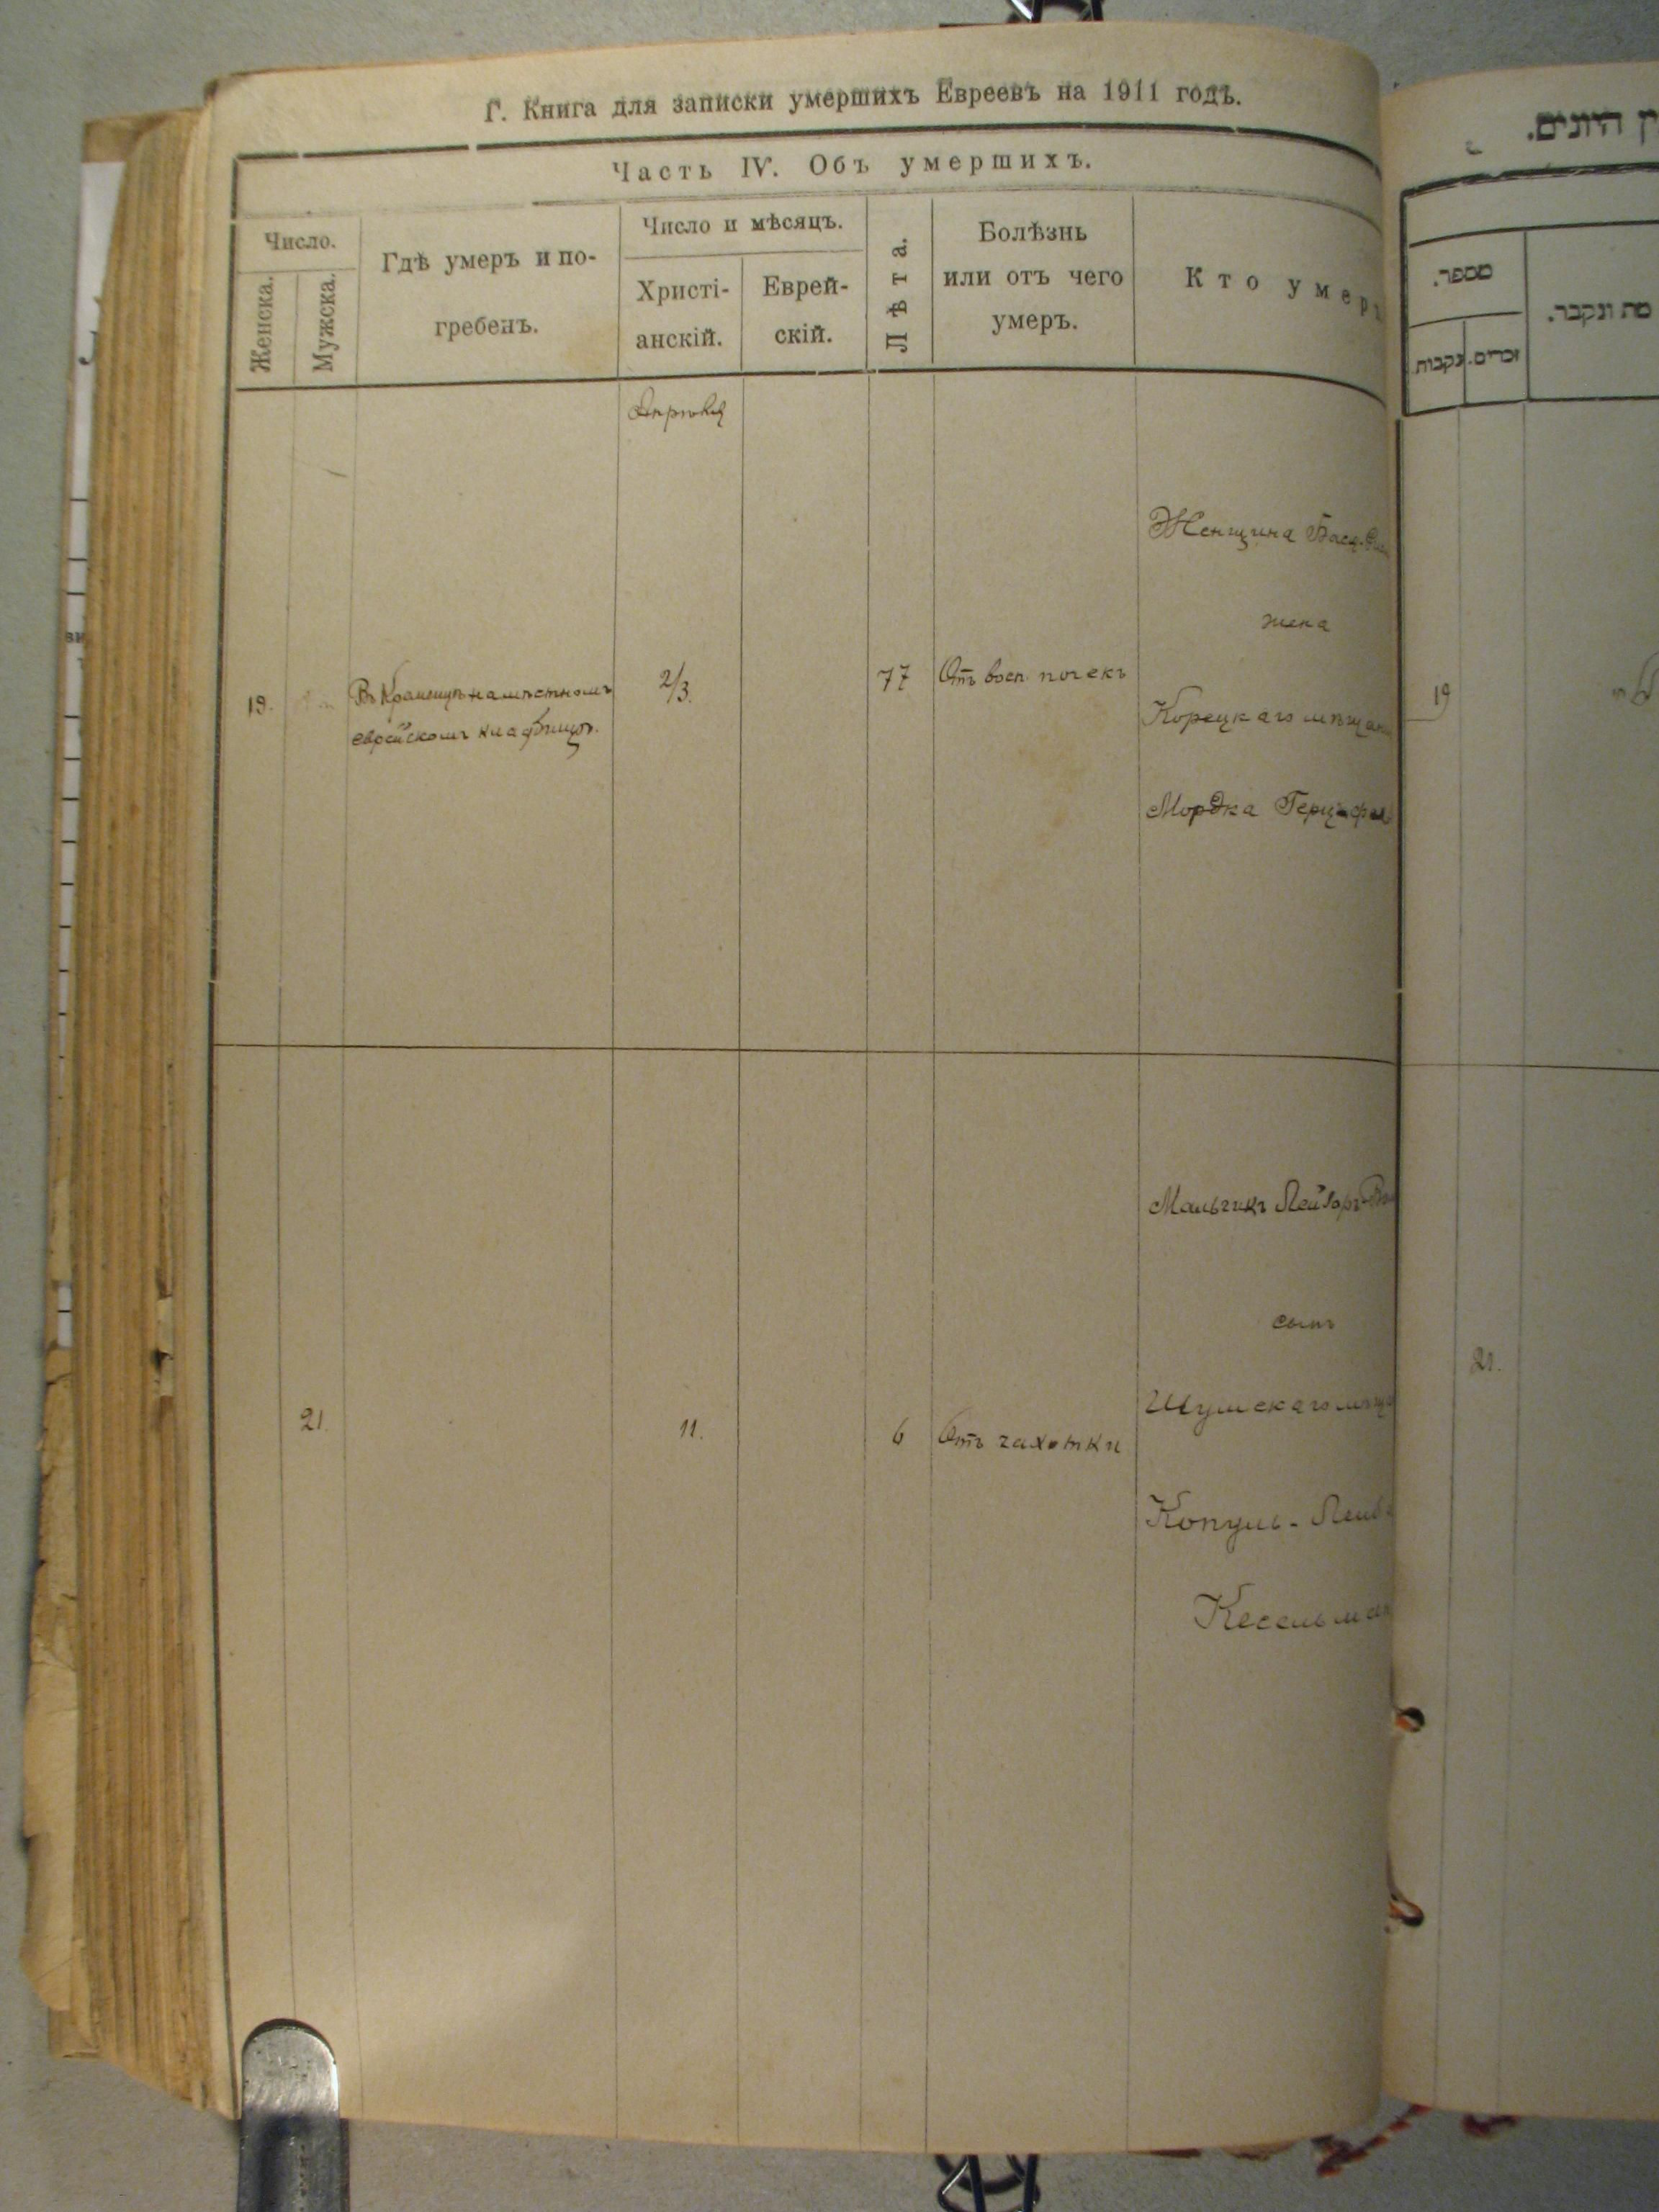 Г. Книга для записки умершихъ Евреевъ на 1911 годъ.
Часть IV. Объ умершихъ.
Число.
Женска.
Мужска.
Гдѣ умеръ и по-
гребенъ.
Число и мѣсяцъ.
Христі-
анскій.
Еврей-
скій.
Лѣта.
Болѣзнь
или отъ чего
умеръ.
Кто умеръ
19.
на мѣстномъ
еврейскомъ кладбищѣ.
2/3.
77
Отъ восп. почекъ
Женщина
жена
Корецкаго
Мордка
21.
11.
6
Отъ чахотки
Мальчикъ Лейзоръ
сынъ
Шумскаго
Копуль-
Кесельман
ין היונים.
מספר.
נקבות.
זכרים.
מת ונקבר.
19
21.